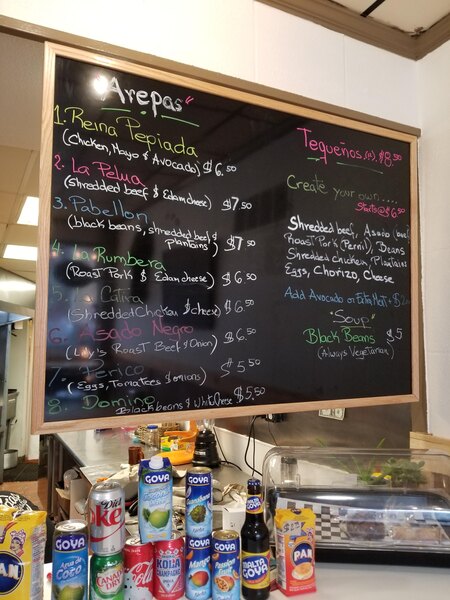 "Arepas"
1. Reina Pepiada
(Chicken, Mayo & Avocado) $6.50
2. La Pelua
(shredded beef & Edam cheese) $7.50
3. Pabellon
(black beans, shredded beef & plantains) $7.50
4. La Rumbera
(Roast Pork & Edam cheese) $6.50
5. La Catira
(Shredded Chicken & cheese) $6.50
6. Asado Negro
(Lily's Roast Beef & Onion) $6.50
7. Perico
(Eggs, Tomatoes & onions) $5.50
8. Domino
Black beans & White Cheese $5.50
Tequeños $8.50
Create your own.....
Starts @ $6.50
Shredded beef, Asado
Roast Pork (Pernil), Beans
Shredded Chicken, Plantains
Eggs, Chorizo, Cheese
Add Avocado or Extra Meat
"Soup"
Black Beans $5
(Always Vegetarian)
GOYA
GOYA
Guanabana
Diet
Coke
GOYA
Agua de
Coco
CANADA
DRY
Coca-Cola
GOYA
KOLA
CHAMPAGNE
GOYA
Mango
GOYA
Passion
Fruit
GOYA
MALTA
GOYA
PAN
PAN